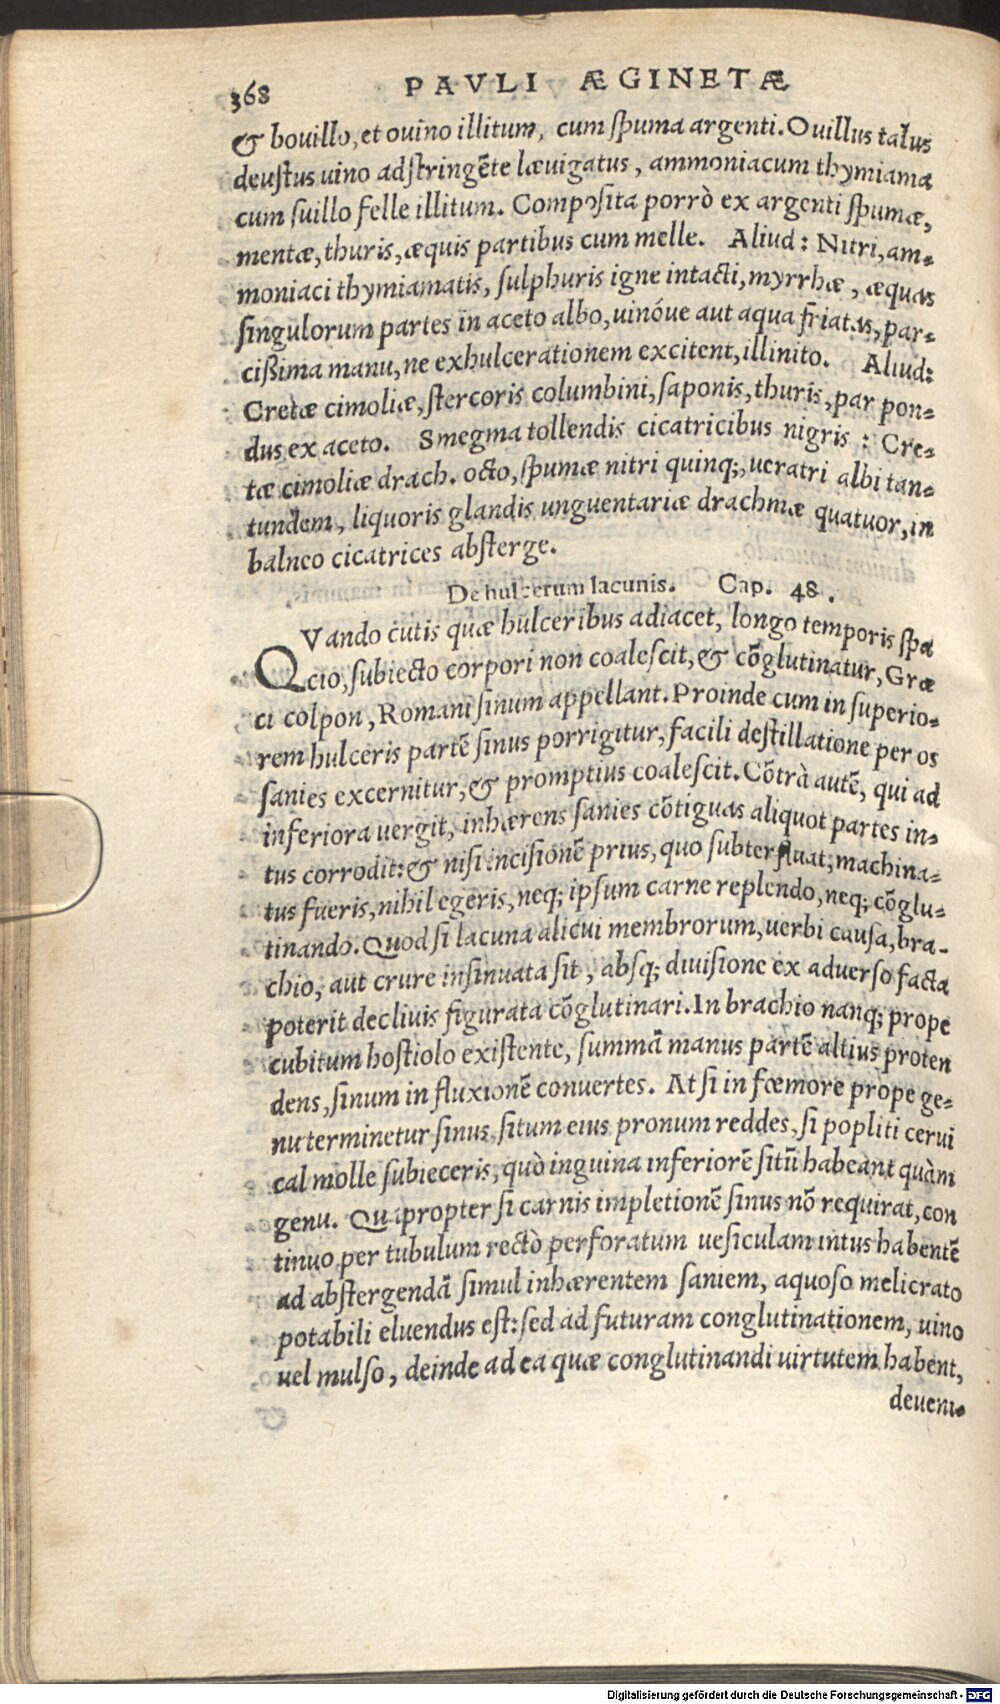 368 PAVLI ÆGINETÆ
& bouillo, et ouino illitum, cum ſpuma argenti. Ouillus talus
deuſtus uino adſtringēte læuigatus, ammoniacum thymiama
cum ſuillo felle illitum. Compoſita porrò ex argenti ſpumæ,
mentæ, thuris, æquis partibus cum melle. Aliud: Nitri, am-
moniaci thymiamatis, ſulphuris igne intacti, myrrhæ, æquas
ſingulorum partes in aceto albo, uinóue aut aqua friatas, par-
cißima manu, ne exhulcerationem excitent, illinito. Aliud:
Cretæ cimoliæ, ſtercoris columbini, ſaponis, thuris, par pon-
dus ex aceto. Smegma tollendis cicatricibus nigris: Cre-
tæ cimoliæ drach. octo, ſpumæ nitri quinq;, ueratri albi tan-
tundem, liquoris glandis unguentariæ drachmæ quatuor, in
balneo cicatrices abſterge.
De hulcerum lacunis. Cap. 48.
QVando cutis quæ hulceribus adiacet, longo temporis ſpa
cio, ſubiecto corpori non coaleſcit, & cōglutinatur, Græ
ci colpon, Romani ſinum appellant. Proinde cum in ſuperio-
rem hulceris partē ſinus porrigitur, facili deſtillatione per os
ſanies excernitur, & promptius coaleſcit. Cōtrà autē, qui ad
inferiora uergit, inhærens ſanies cōtiguas aliquot partes in-
tus corrodit: & niſi inciſionē prius, quo ſubterfluat, machina-
tus fueris, nihil egeris, neq; ipſum carne replendo, neq; cōglu-
tinando. Quod ſi lacuna alicui membrorum, uerbi cauſa, bra-
chio, aut crure inſinuata ſit, abſq; diuiſione ex aduerſo facta
poterit decliuis figurata cōglutinari. In brachio nanq; prope
cubitum hoſtiolo exiſtente, ſummā manus partē altius proten
dens, ſinum in fluxionē conuertes. At ſi in fœmore prope ge-
nu terminetur ſinus, ſitum eius pronum reddes, ſi popliti cerui
cal molle ſubieceris, quò inguina inferiorē ſitū habeant quàm
genu. Quapropter ſi carnis impletionē ſinus nō requirat, con
tinuo per tubulum rectò perforatum ueſiculam intus habentē
ad abſtergendā ſimul inhærentem ſaniem, aquoſo melicrato
potabili eluendus eſt: ſed ad futuram conglutinationem, uino
uel mulſo, deinde ad ea quæ conglutinandi uirtutem habent,
deueni-
Digitalisierung gefördert durch die Deutsche Forschungsgemeinschaft - DFG